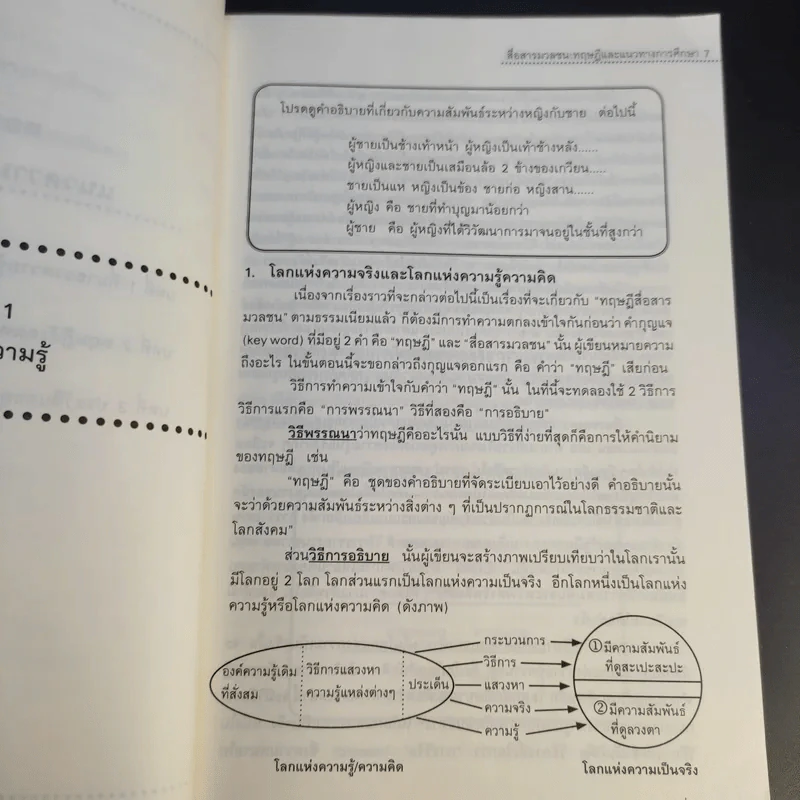 สื่อสารมวลชน:ทฤษฎีและแนวทางการศึกษา 7
โปรดดูคำอธิบายที่เกี่ยวกับความสัมพันธ์ระหว่างหญิงกับชาย ต่อไปนี้
ผู้ชายเป็นช้างเท้าหน้า ผู้หญิงเป็นเท้าช้างหลัง......
ผู้หญิงและชายเป็นเสมือนล้อ 2 ข้างของเกวียน.....
ชายเป็นแห หญิงเป็นข้อง ชายก่อ หญิงสาน......
ผู้หญิง คือ ชายที่ทำบุญมาน้อยกว่า
ผู้ชาย คือ ผู้หญิงที่ได้วิวัฒนาการมาจนอยู่ในชั้นที่สูงกว่า
1. โลกแห่งความจริงและโลกแห่งความรู้ความคิด
เนื่องจากเรื่องราวที่จะกล่าวต่อไปนี้เป็นเรื่องที่จะเกี่ยวกับ "ทฤษฎีสื่อสาร
มวลชน" ตามธรรมเนียมแล้ว ก็ต้องมีการทำความตกลงเข้าใจกันก่อนว่า คำกุญแจ
(key word) ที่มีอยู่ 2 คำ คือ "ทฤษฎี" และ "สื่อสารมวลชน" นั้น ผู้เขียนหมายความ
ถึงอะไร ในขั้นตอนนี้จะขอกล่าวถึงกุญแจดอกแรก คือ คำว่า "ทฤษฎี" เสียก่อน
วิธีการทำความเข้าใจกับคำว่า "ทฤษฎี" นั้น ในที่นี้จะทดลองใช้ 2 วิธีการ
วิธีการแรกคือ "การพรรณนา" วิธีที่สองคือ "การอธิบาย"
วิธีพรรณนาว่าทฤษฎีคืออะไรนั้น แบบวิธีที่ง่ายที่สุดก็คือการให้คำนิยาม
ของทฤษฎี เช่น
"ทฤษฎี" คือ ชุดของคำอธิบายที่จัดระเบียบเอาไว้อย่างดี คำอธิบายนั้น
จะว่าด้วยความสัมพันธ์ระหว่างสิ่งต่าง ๆ ที่เป็นปรากฏการณ์ในโลกธรรมชาติและ
โลกสังคม"
ส่วนวิธีการอธิบาย นั้นผู้เขียนจะสร้างภาพเปรียบเทียบว่าในโลกเรานั้น
มีโลกอยู่ 2 โลก โลกส่วนแรกเป็นโลกแห่งความเป็นจริง อีกโลกหนึ่งเป็นโลกแห่ง
ความรู้หรือโลกแห่งความคิด (ดังภาพ)
องค์ความรู้เดิม
ที่สั่งสม
วิธีการแสวงหา
ความรู้แหล่งต่างๆ
ประเด็น
กระบวนการ
วิธีการ
แสวงหา
ความจริง
ความรู้
①มีความสัมพันธ์
ที่ดูสะเปะสะปะ
②มีความสัมพันธ์
ที่ดูลวงตา
โลกแห่งความรู้/ความคิด
โลกแห่งความเป็นจริง
1
วามรู้